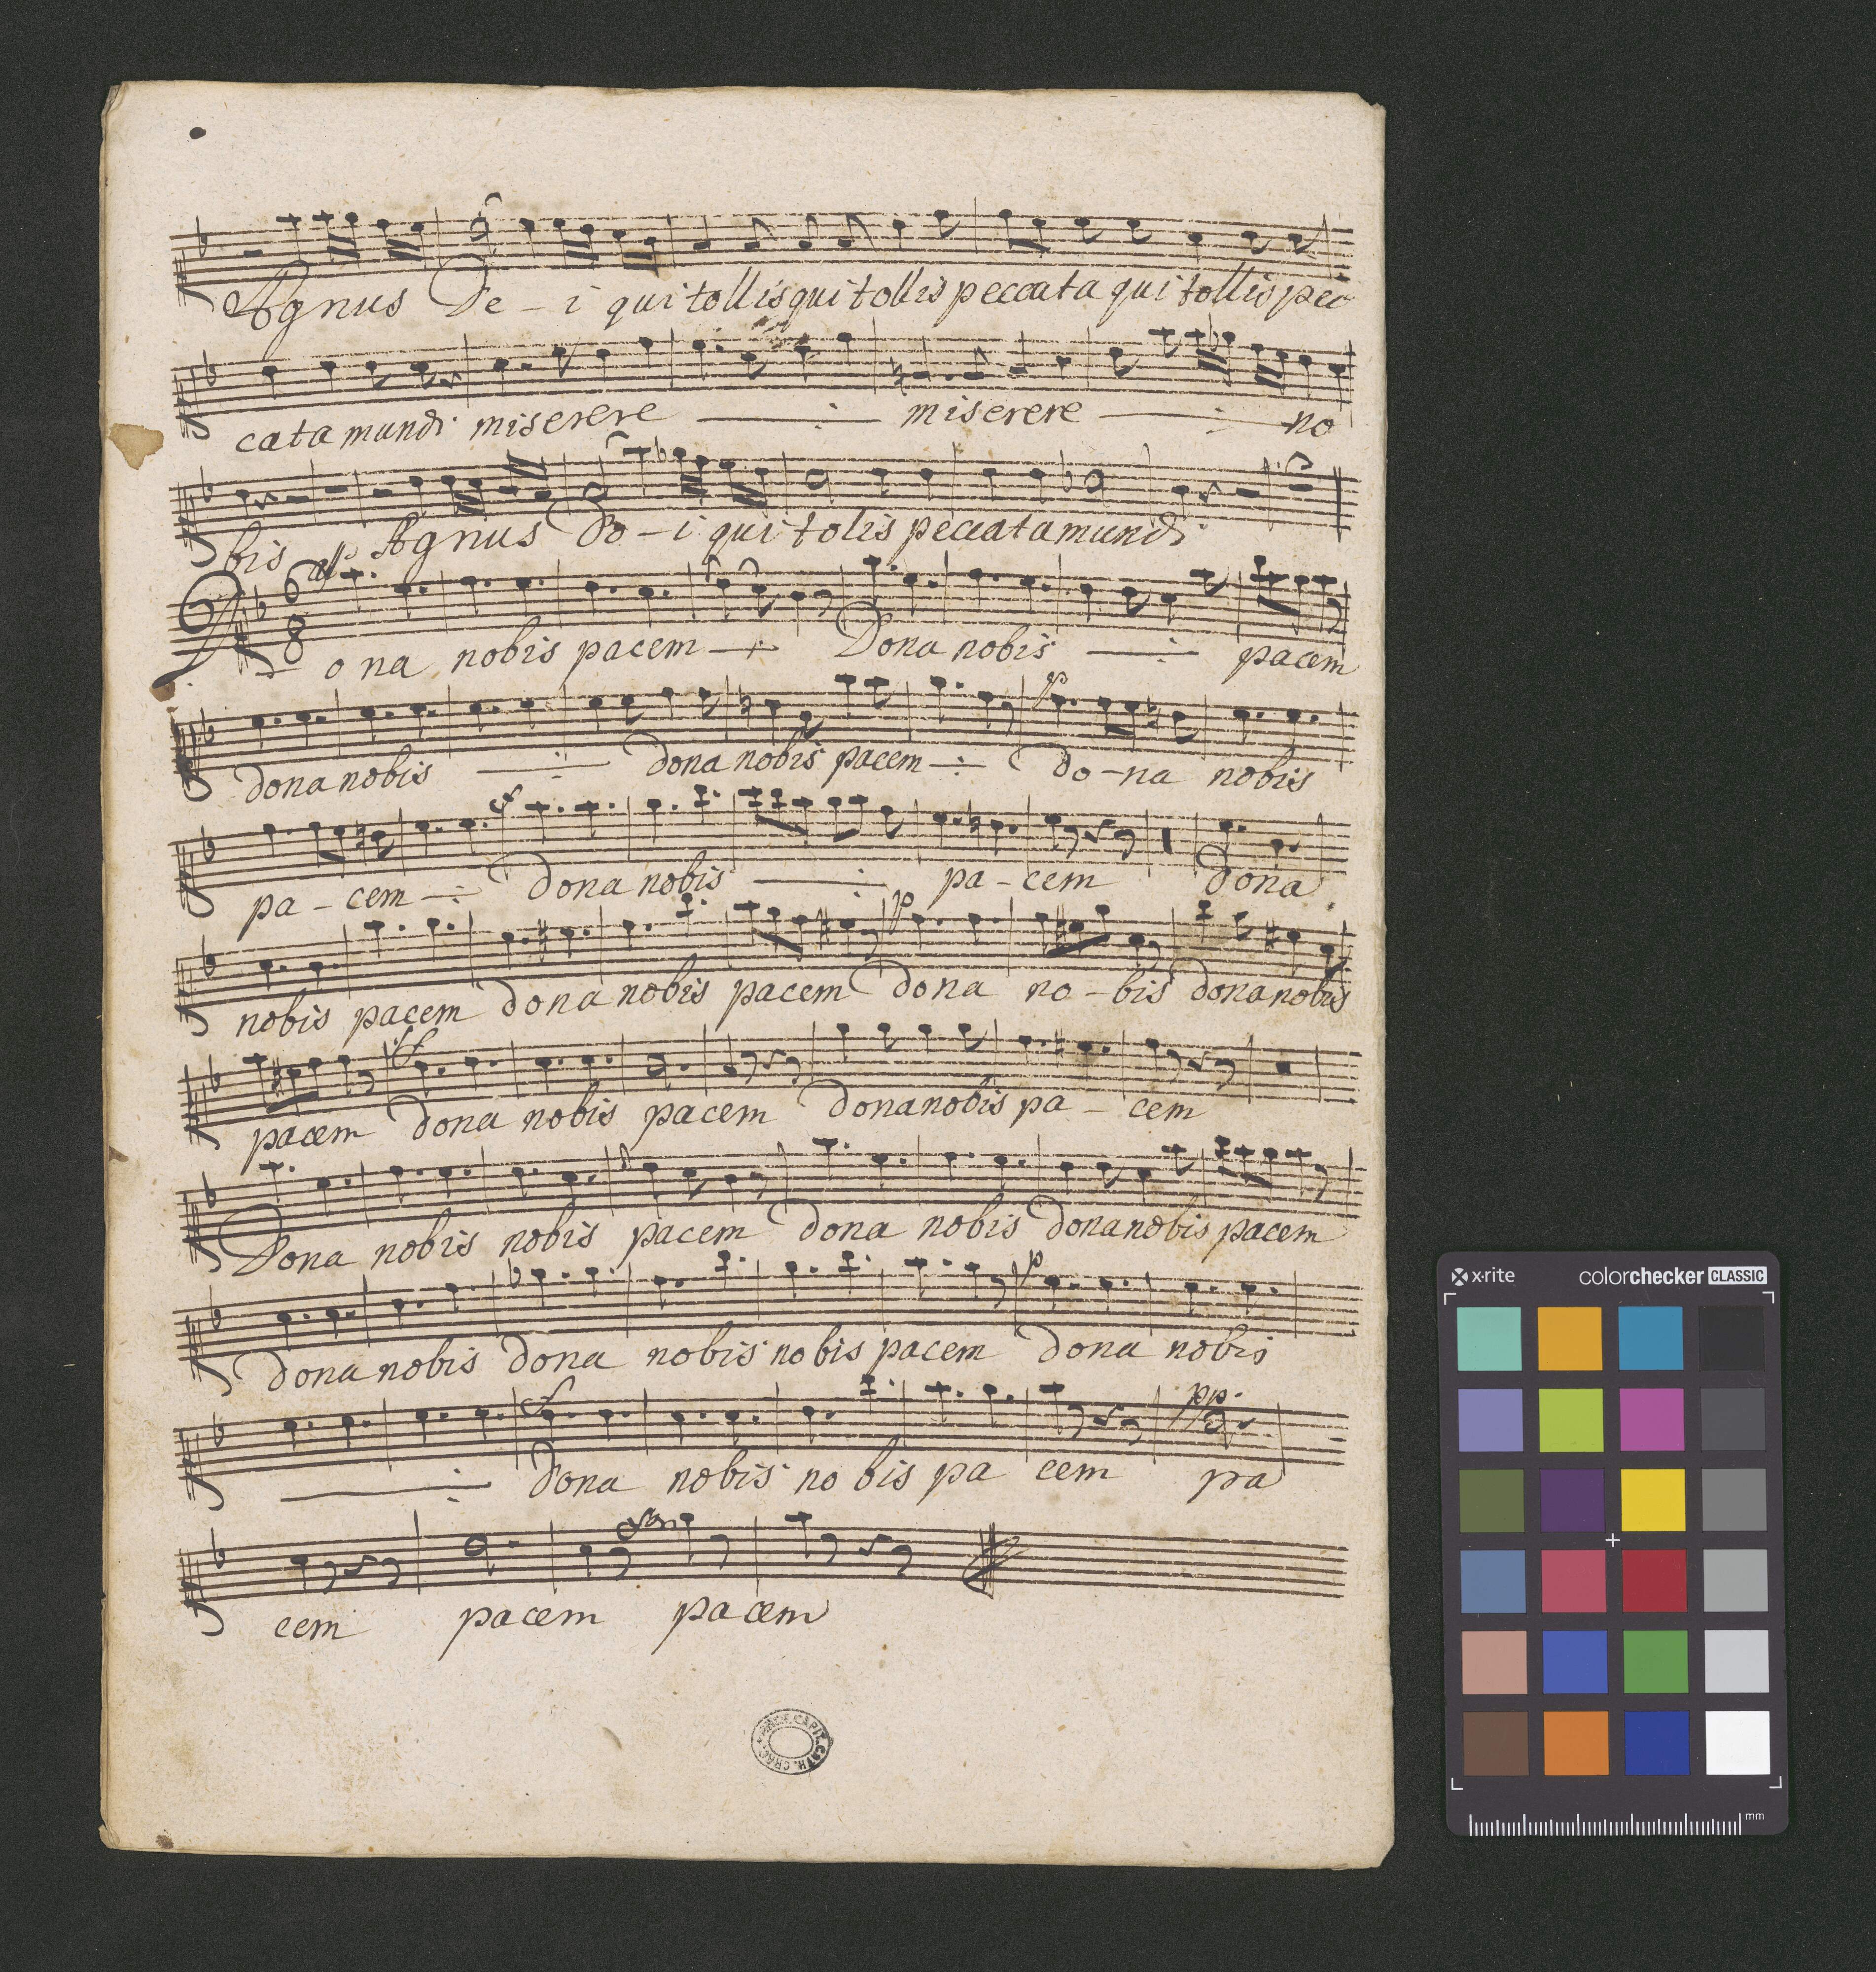 Agnus De - i qui tollis qui tollis peccata qui tollis pec
cata mundi miserere miserere no
bis Agnus De - i qui tolis peccata mundi
all°
6
8
Dona nobis pacem Dona nobis pacem
p
dona nobis dona nobis pacem do - na nobis
f
pa - cem dona nobis pa - cem dona
p
nobis pacem dona nobis pacem dona no - bis dona nobis
f
pacem dona nobis pacem dona nobis pa - cem
Dona nobis nobis pacem dona nobis dona nobis pacem
p
dona nobis dona nobis nobis pacem dona nobis
f pp.
dona nobis no bis pa cem pa
cem pacem pacem
CAPIT. CATH. CRAC.
x-rite colorchecker CLASSIC
mm